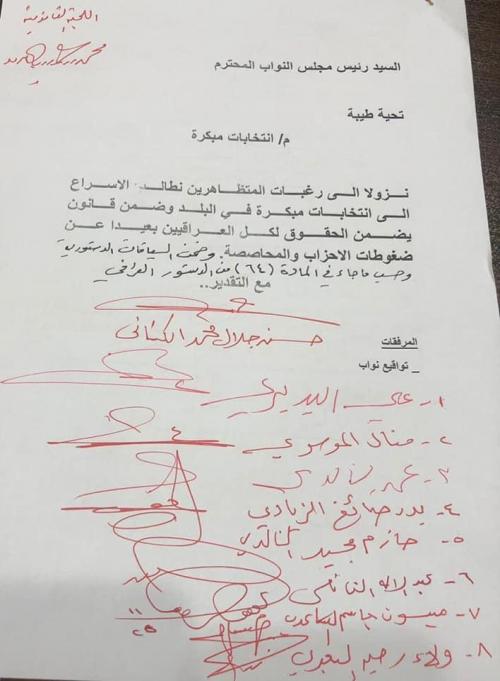 اللجنة القانونية
السيد رئيس مجلس النواب المحترم
تحية طيبة
م/ انتخابات مبكرة
نزولا الى رغبات المتظاهرين نطالب الاسراع
الى انتخابات مبكرة في البلد وضمن قانون
يضمن الحقوق لكل العراقيين بعيدا عن
ضغوطات الاحزاب والمحاصصة. وضمن السياقات الدستورية
وحسب ما جاء في المادة (٦٤) من الدستور العراقي
مع التقدير..
حسن جلال محمد الكناني
المرفقات
_ تواقيع نواب
١- علي البديري
٢- منال الموسوي
٣-
٤- بدر صائغ الزيادي
٥- حازم مجيد الخالدي
٦- عبد الاله النائلي
٧- ميسون جاسم الساعدي
١١/٢٥
٨- ولاء رحيم